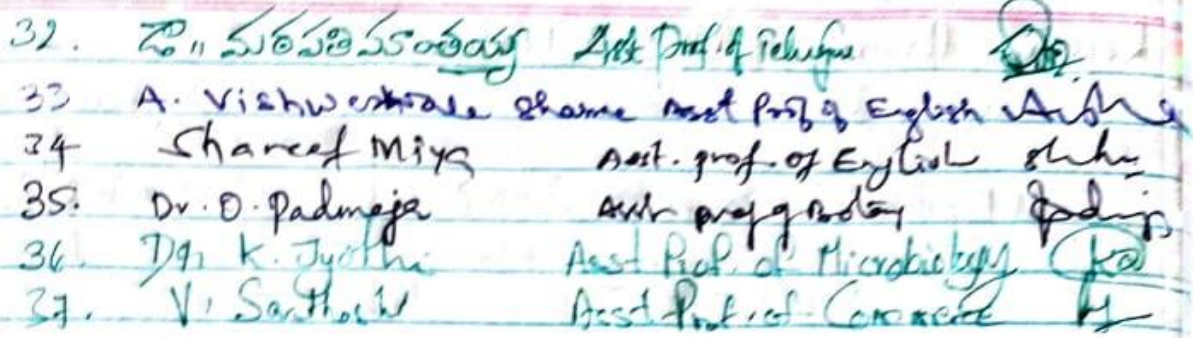 32. డా,, మఠపతి సంతయ్య Asst Prof. of Telugu
33 A. Vishweshwara Sharma Asst Prof of English
34 Shareef Miya Asst. prof. of English
35. Dr. O. Padmaja Asst prof of Botany
36. Dr. K. Jyothi Asst Prof. of Microbiology
37. V. Santhosh Asst Prof. of Commerce